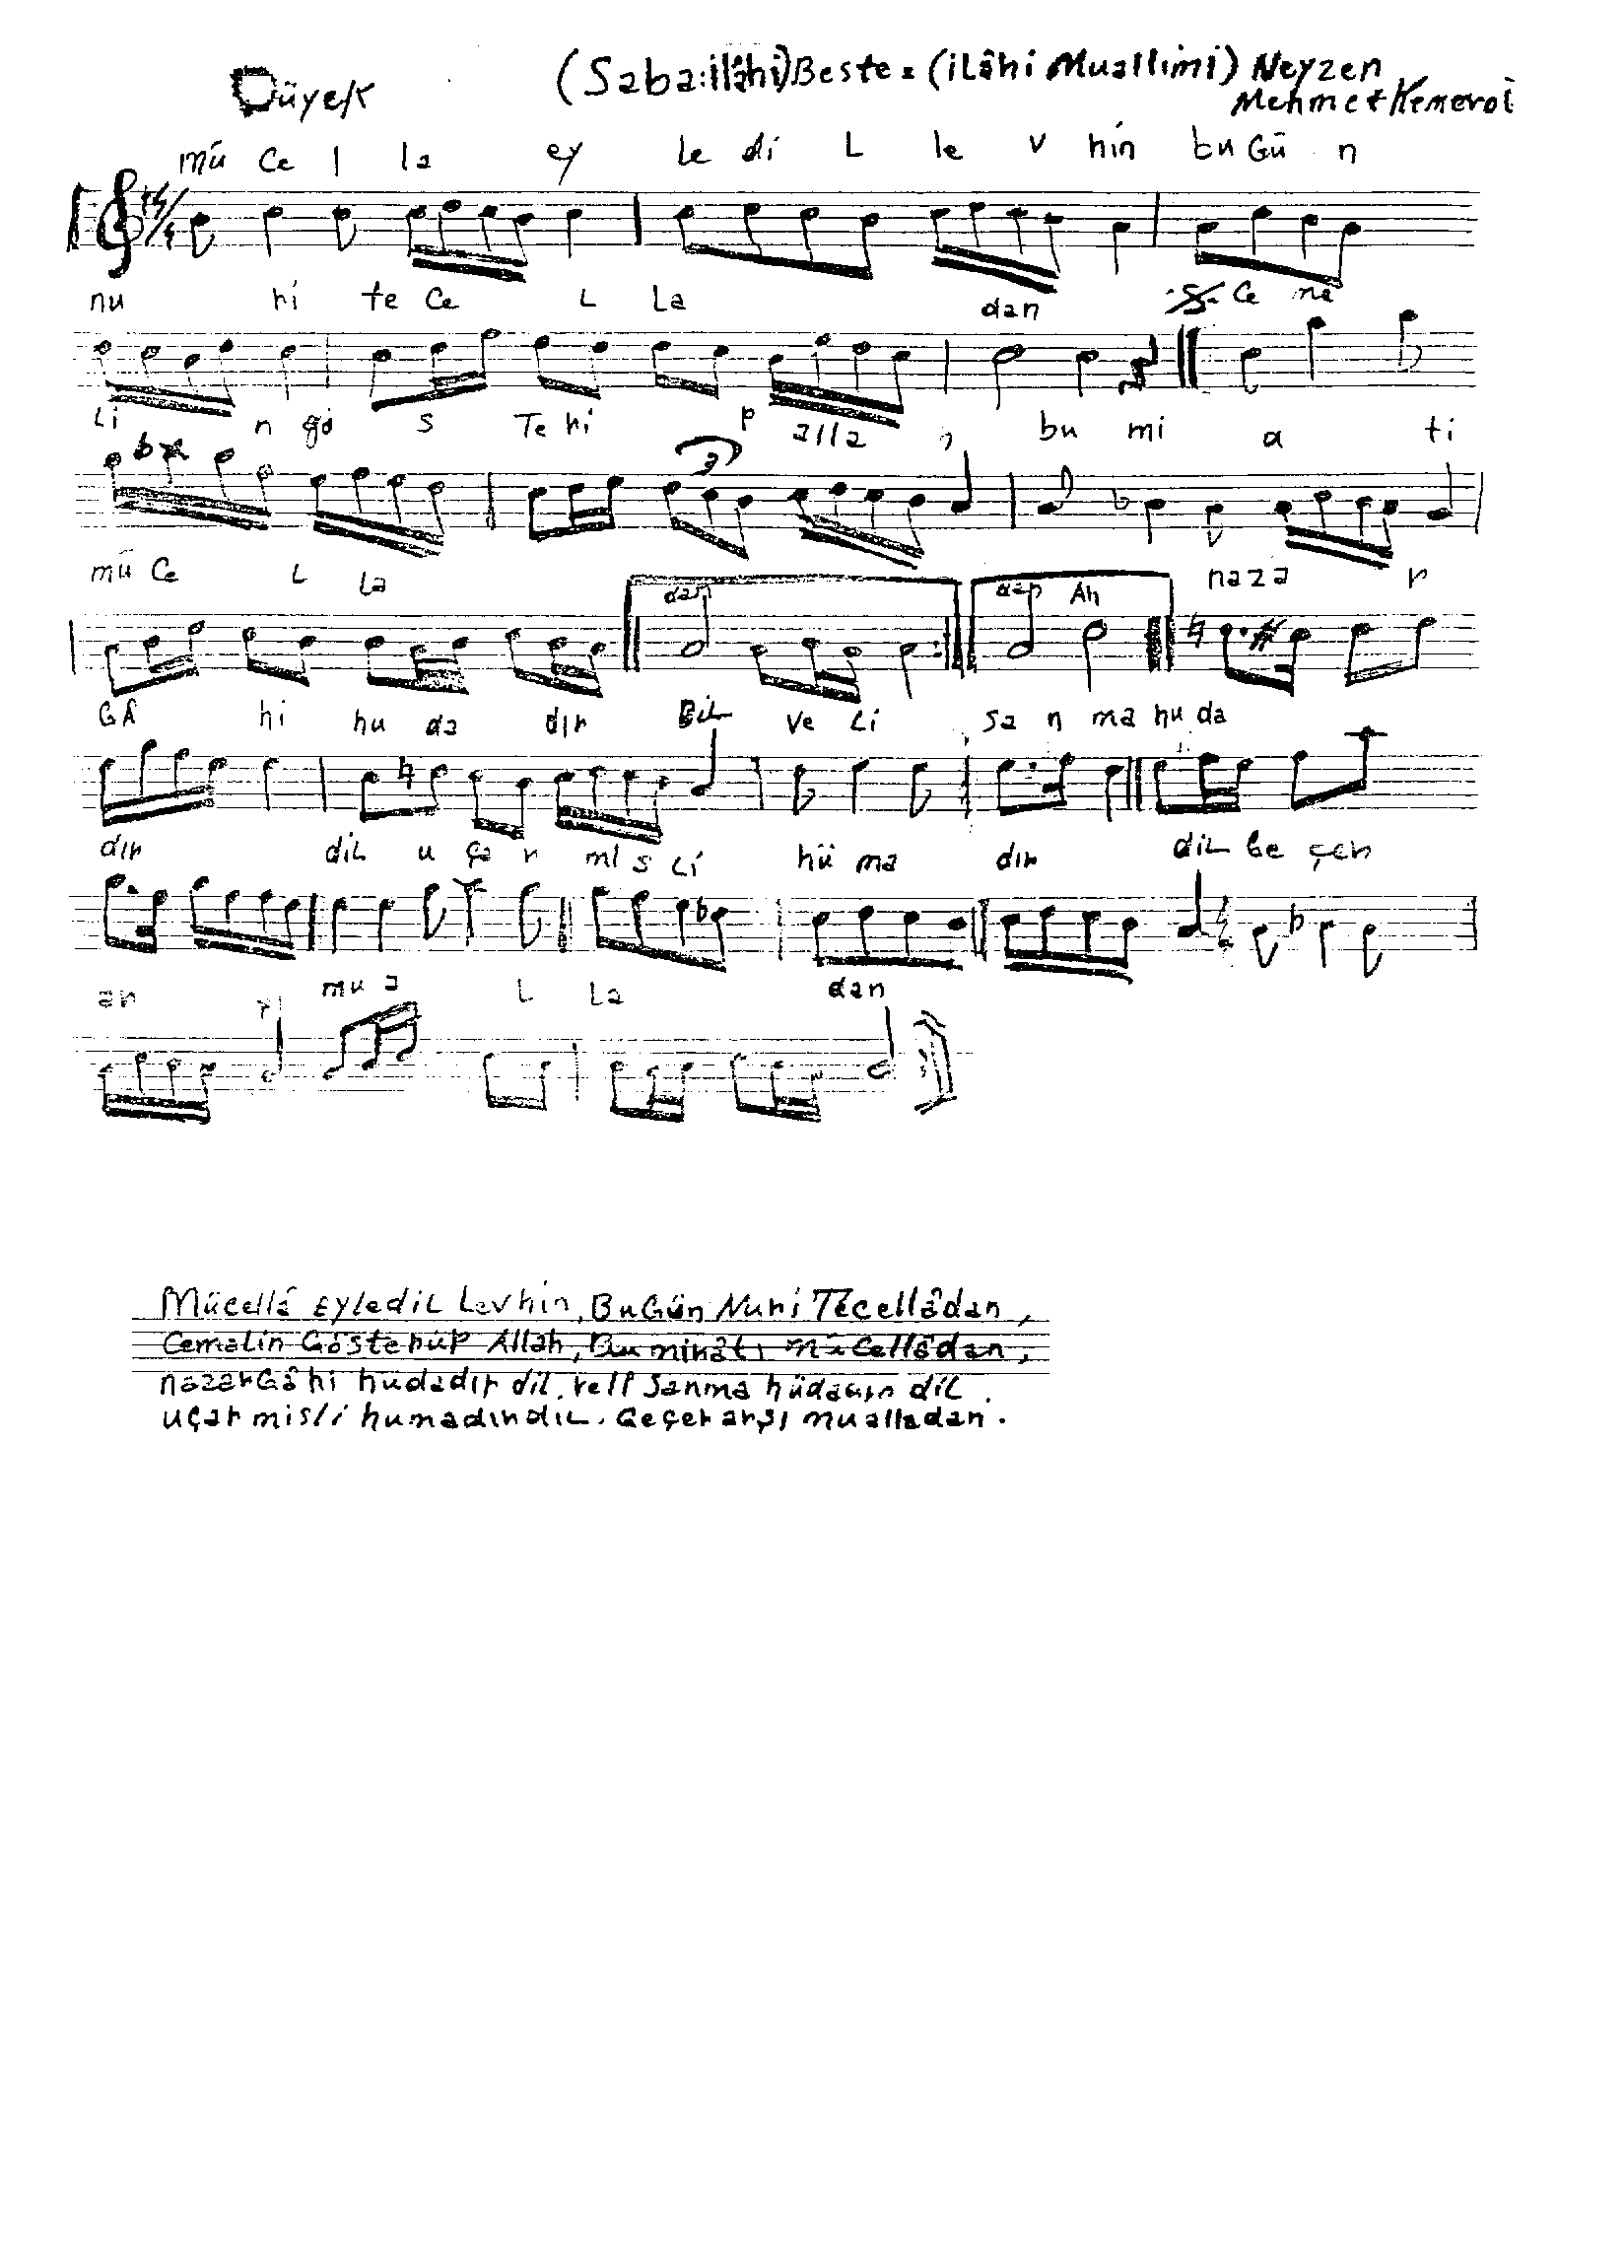 Düyek
(Saba: ilâhi) Beste = (iLâhi Muallimi) Neyzen
Mehmet Kemerol
mü Ce l la ey le di L le v hin bu Gü n
nu ri te Ce L La dan Ce ma
Li n gö s Te ri p alla h bu mi a ti
mü Ce L La dan dan Ah naza r
GÂ hi hu da dır DiL ve Li sa n ma hu da
dır diL u ça r mi s Li hü ma dır diL Ge çer
ar şı mu a L La dan
Mücellâ EylediL Levhin, BuGün Nuri Tecellâdan,
Cemalin Gösterüp Allah, Bu mirâtı mücellâdan,
nazarGâhi hudadır dil. veli Sanma hüdadır diL.
uçar misli humadırdıL. Geçer arşı mualladan.